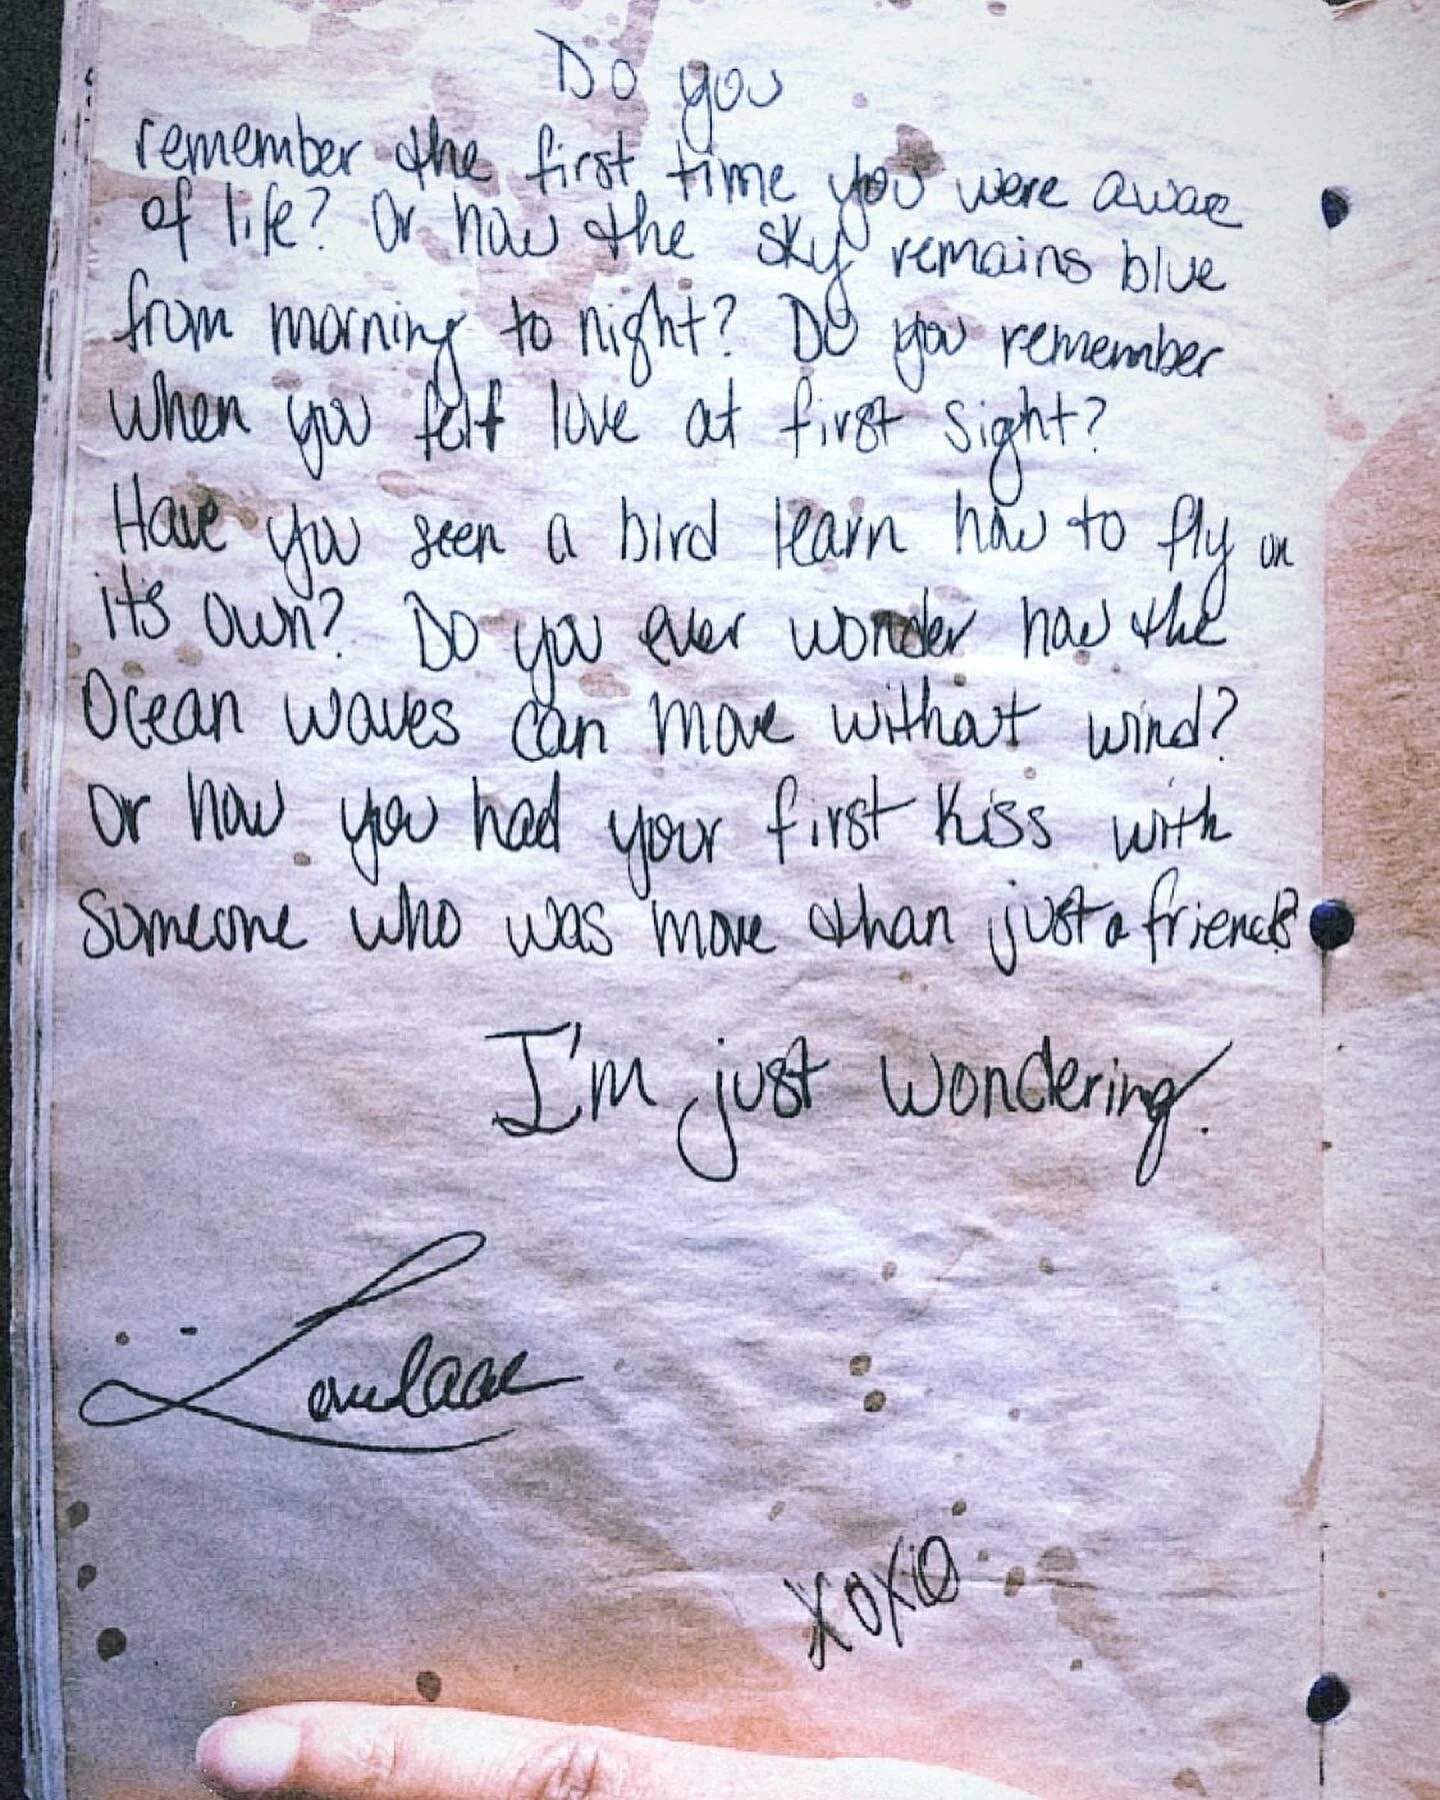 Do you
remember the first time you were aware
of life? Or how the sky remains blue
from morning to night? Do you remember
when you felt love at first sight?
Have you seen a bird learn how to fly on
it's own? Do you ever wonder how the
Ocean waves can move without wind?
Or how you had your first kiss with
Someone who was more than just a friend?
I'm just wondering.
xoxo